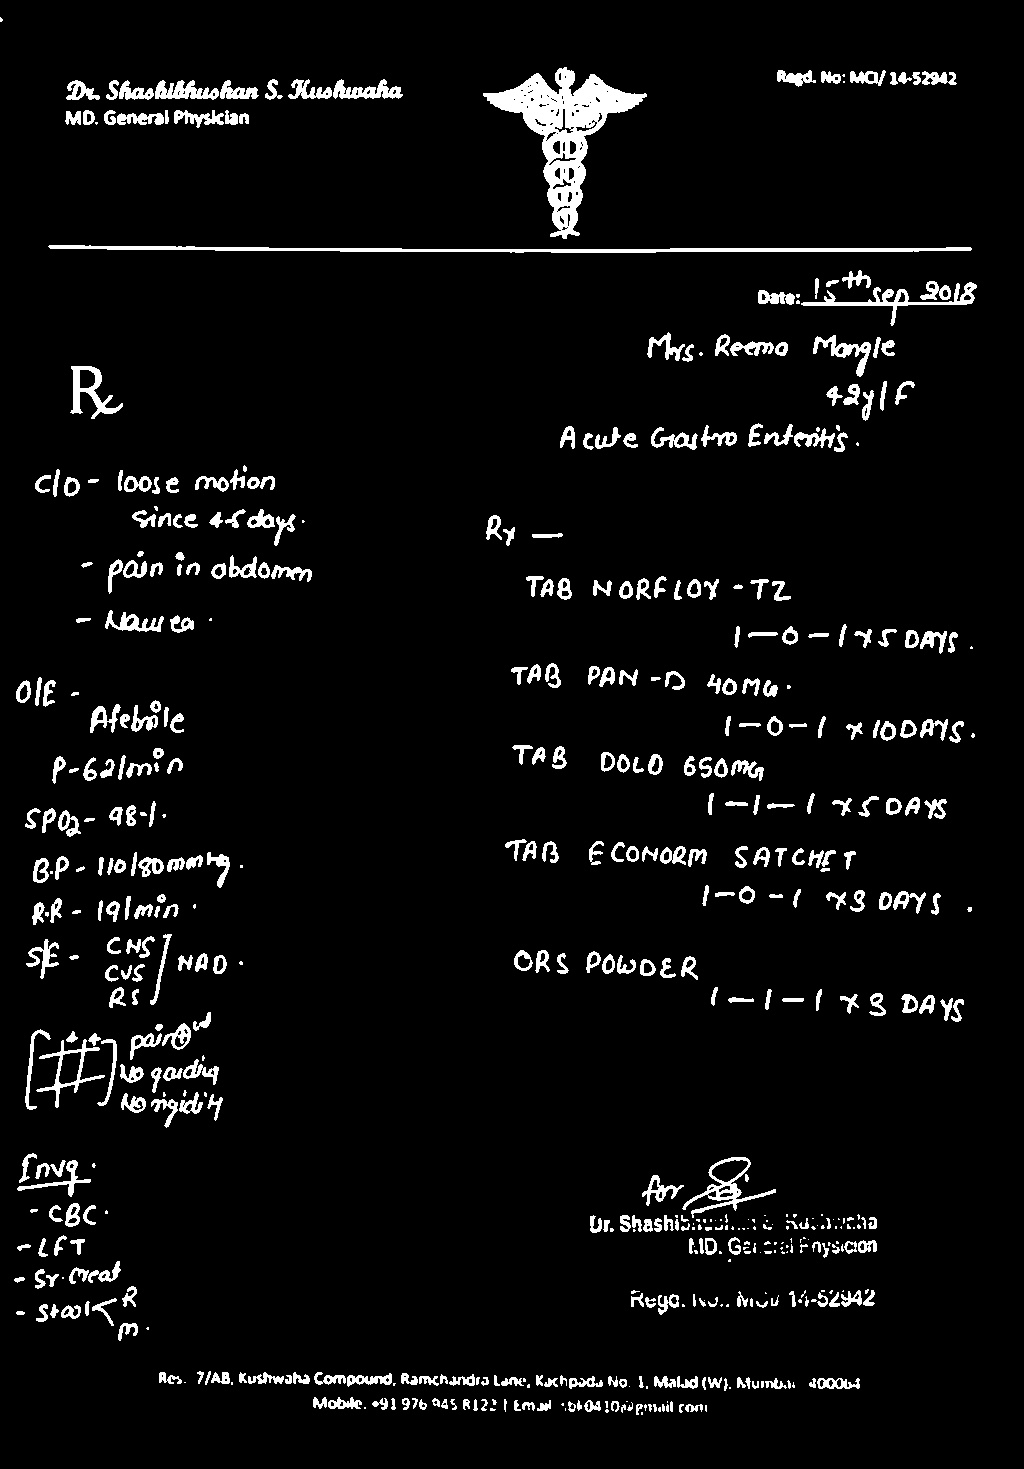 Dr. Shashibhushan S. Kushwaha
MD. General Physician
Regd. No: MCI/ 14-52942
Date: 15th Sep 2018
Mrs. Reema Mangle
42y/F
Acute Gastro Enteritis.
Rx
C/O - loose motion
since 4-5 days.
- pain in abdomen
- Nausea.
O/E -
Afebrile
P-62/min
SPO2- 98-/.
B.P - 110/80mmHg.
R.R - 19/min.
S/E - CNS
CVS
RS
NAD.
pain
No garding
No rigidity
Invg.
- CBC.
- LFT
- Sr. Creat
- Stool < R
m.
Rx —
TAB NORFLOX - TZ
1-0-1 x 5 DAYS.
TAB PAN-D 40MG.
1-0-1 x 10DAYS.
TAB DOLO 650MG
1-1-1 x 5 DAYS
TAB ECONORM SATCHET
1-0-1 x 3 DAYS.
ORS POWDER
1-1-1 x 3 DAYS
for
Dr. Shashibhushan S. Kushwaha
MD. General Physician
Regd. No.: MCI/ 14-52942
Res. 7/AB, Kushwaha Compound, Ramchandra Lane, Kachpada No. 1, Malad (W), Mumbai 400064
Mobile: +91 976 945 8122 | Email: sbk0410@gmail.com